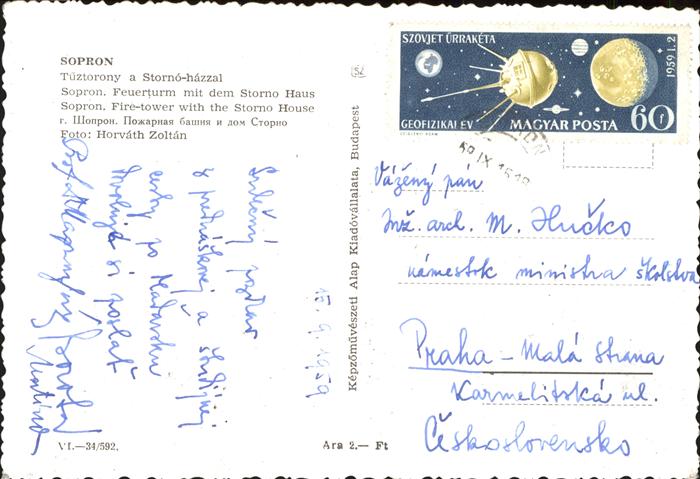 SOPRON
Tűztorony a Stornó-házzal
Sopron. Feuerturm mit dem Storno Haus
Sopron. Fire-tower with the Storno House
г. Шопрон. Пожарная башня и дом Сторно
Foto: Horváth Zoltán
Srdečný pozdrav
z prednáškovej a študijnej
cesty po Maďarsku
dovoluje si poslať
Prof.
Martina
15. 9. 1959
VI.—34/592.
Ara 2.— Ft
Képzőművészeti Alap Kiadóvállalata, Budapest
SZOVJET ŰRRAKÉTA
1959 I. 2
GEOFIZIKAI ÉV
MAGYAR POSTA
60 f
59 IX 15
Vážený pán
Inž. arch. M. Hučko
námestok ministra školstva
Praha – Malá Strana
Karmelitská ul.
Československo